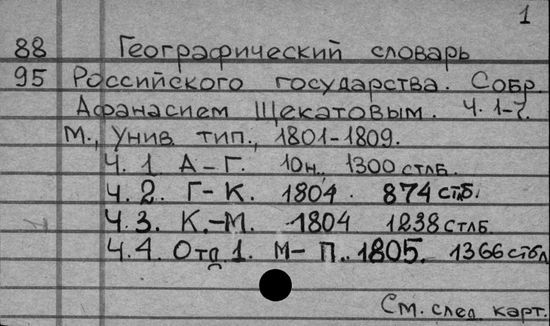 1
88 Географический словарь
95 Российского государства. Собр.
Афанасием Щекатовым. Ч. 1-7.
М., Унив. тип., 1801-1809.
Ч. 1 А – Г. 1300 стлб.
Ч. 2. Г – К. 1804. 874 стлб.
Ч. 3. К.–М. 1804 1238 стлб.
Ч. 4. Отд. 1. М – П. 1805. 1366 стбл
См. след. карт.